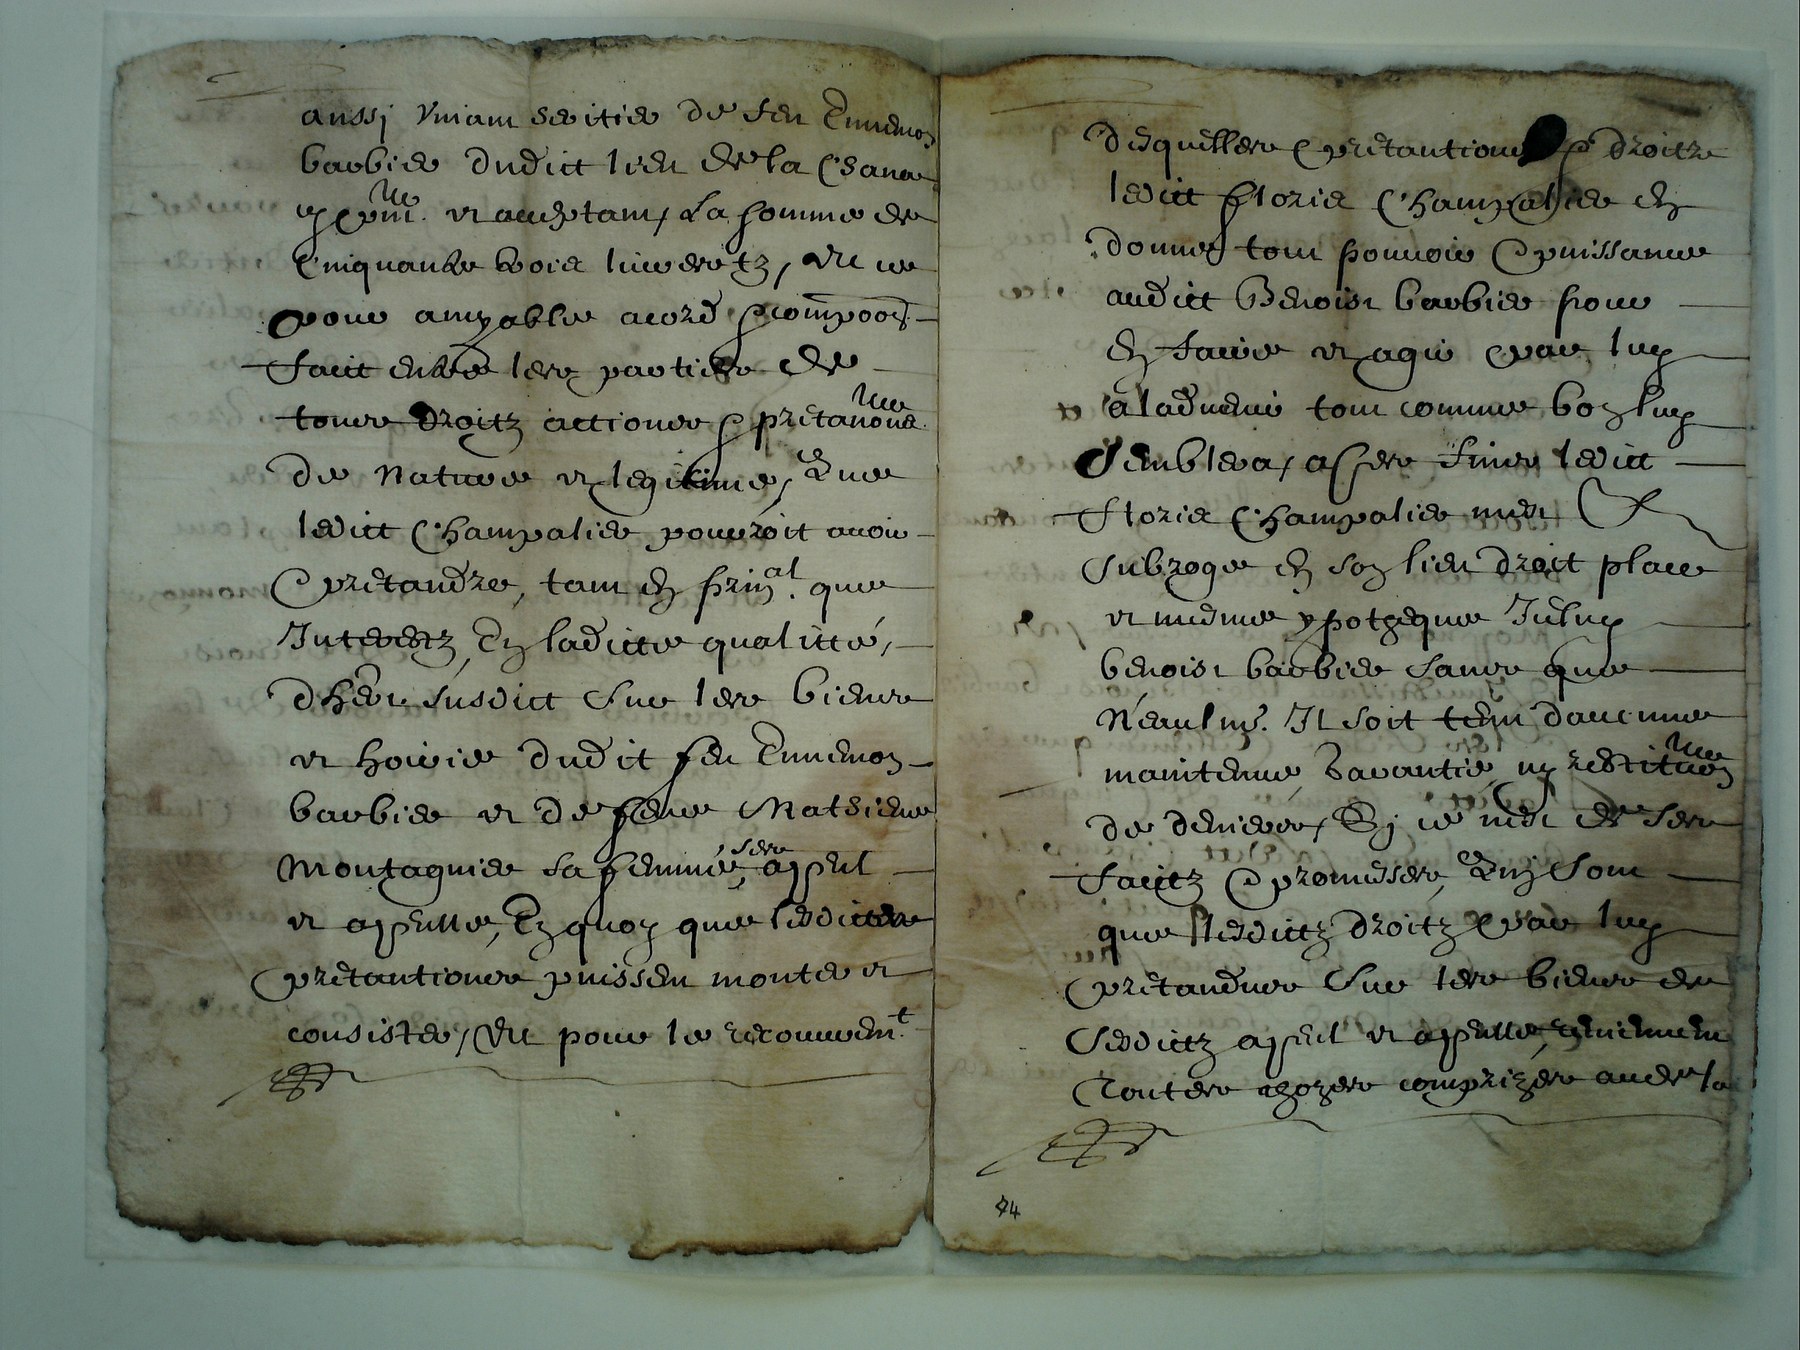 aussj vivant heritier de feu Ennemon
barbier dudict lieu de la Chanal
pnt. et acceptant, La somme de
Cinquante trois livres tz, Et ce
pour amyable acord & compoon
faict entre les parties de
tous droitz actions & pretanons
de Nature et legitime, Que
ledict Champalier pourroit avoir
& pretandre, tant en prinal. que
Interestz, En ladicte qualitté,
dher susdict sur les biens
et hoirie dudit feu Ennemon
barbier et de feue Mathieue
Montagnier sa femme, ses ayeul
et ayeulle, En quoy que lesdictes
pretantions puissent monter et
consister, Et pour le recouvremt
desquelles pretantions & droitz
ledict floris Champalier en
donne tout pouvoir & puissance
audict Benoist barbier pour
en faire et agir par luy
a ladvenir tout comme bon luy
Semblera, a ces fins ledict
floris Champalier met &
subroge en son lieu droit place
et mesme ypotheque Iceluy
benoist barbier sans que
Neaulms. Il soit tenu daucune
maintenue, Garantie, ny restituon
de deniers, Sj ce nest de ses
faictz & promesses, Quj sont
que lesdictz droitz par luy
pretandus sur les biens de
Sesdictz ayeul et ayeulle,
Toutes chozes comprizes au dela
74